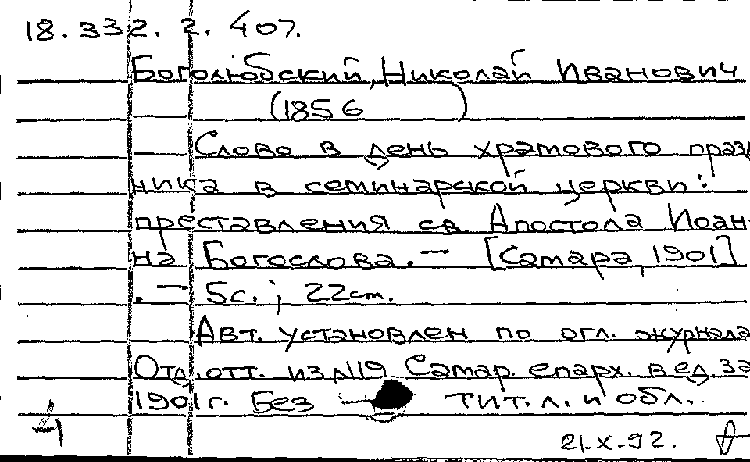 18.332.2.407.
Боголюбский, Николай Иванович
(1856 )
Слово в день храмового празд
ника в семинарской церкви:
преставления св. Апостола Иоан-
на Богослова. — [Самара, 1901]
. — 5с.; 22см.
Авт. установлен по огл. журнала
Отд. отт. из №19 Самар. епарх. вед. за
1901г. Без тит. л. и обл.
4
21.X.92.